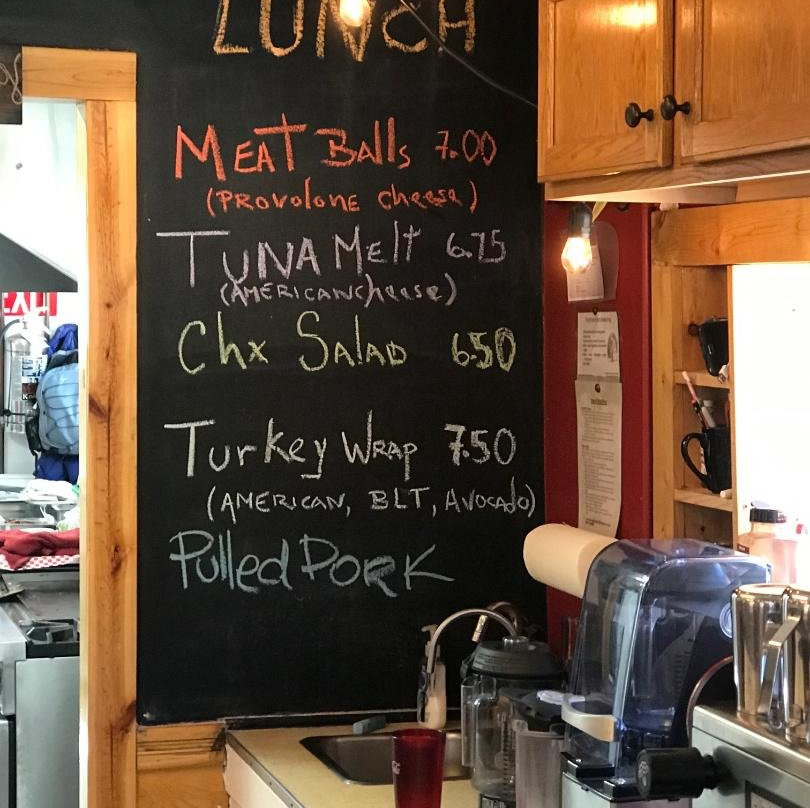 LUNCH
MEAT Balls 7.00
(PROVOLONE cheese)
TUNA MELT 6.75
(AMERICAN cheese)
Chx SALAD 6.50
Turkey WRAP 7.50
(AMERICAN, BLT, AVOCADO)
Pulled PORK